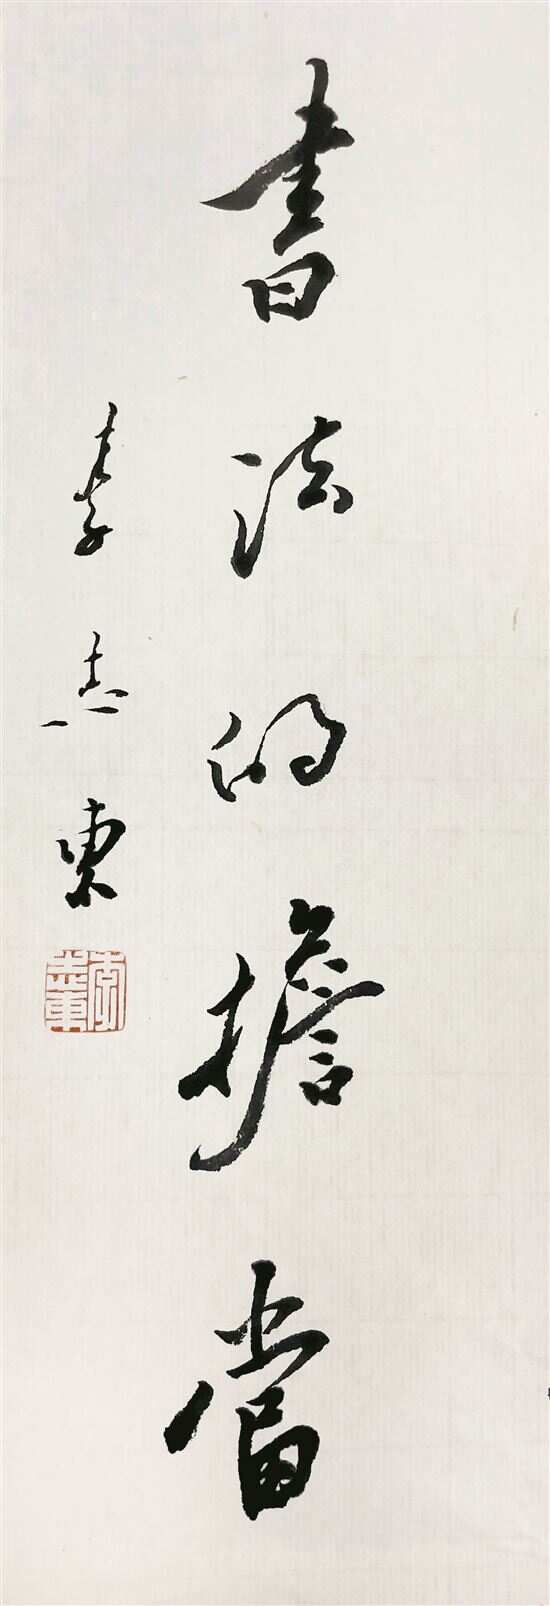 書法的擔當
李志東